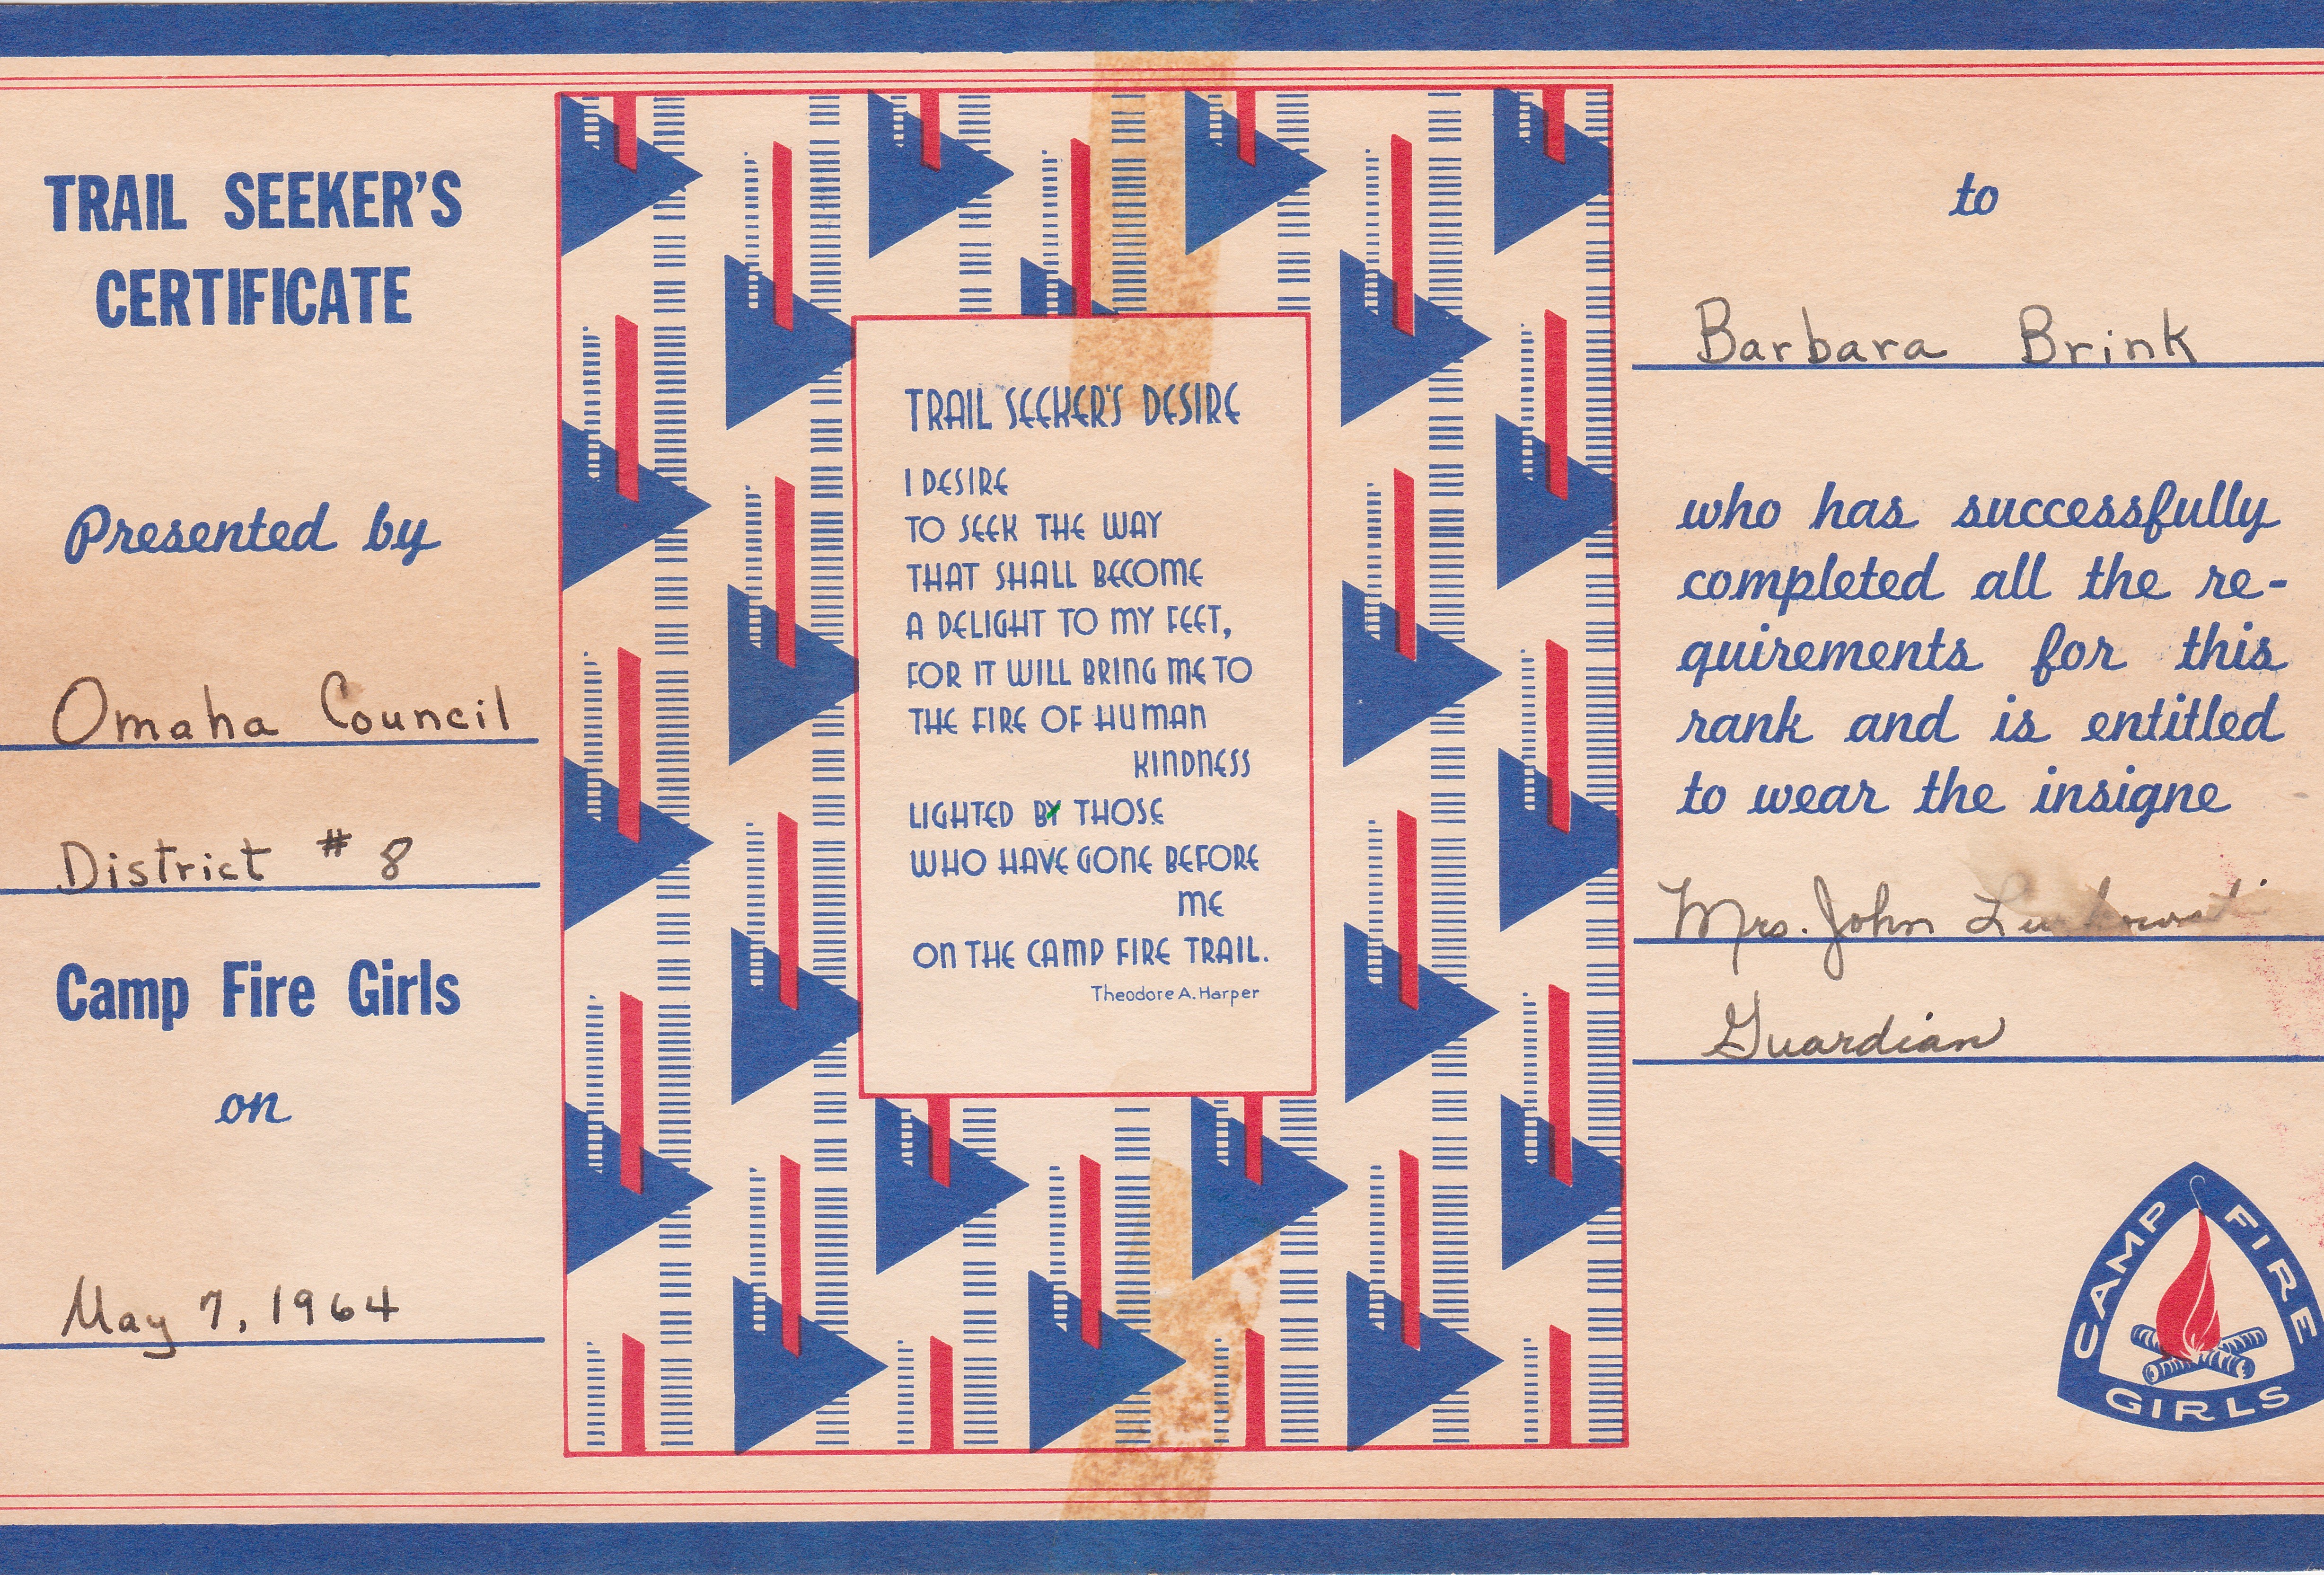 TRAIL SEEKER'S
CERTIFICATE
Presented by
Omaha Council
District # 8
Camp Fire Girls
on
May 7, 1964
TRAIL SEEKER'S DESIRE
I DESIRE
TO SEEK THE WAY
THAT SHALL BECOME
A DELIGHT TO MY FEET,
FOR IT WILL BRING ME TO
THE FIRE OF HUMAN
KINDNESS
LIGHTED BY THOSE
WHO HAVE GONE BEFORE
ME
ON THE CAMP FIRE TRAIL.
Theodore A. Harper
to
Barbara Brink
who has successfully
completed all the re-
quirements for this
rank and is entitled
to wear the insigne
Mrs. John
Guardian
CAMP FIRE
GIRLS